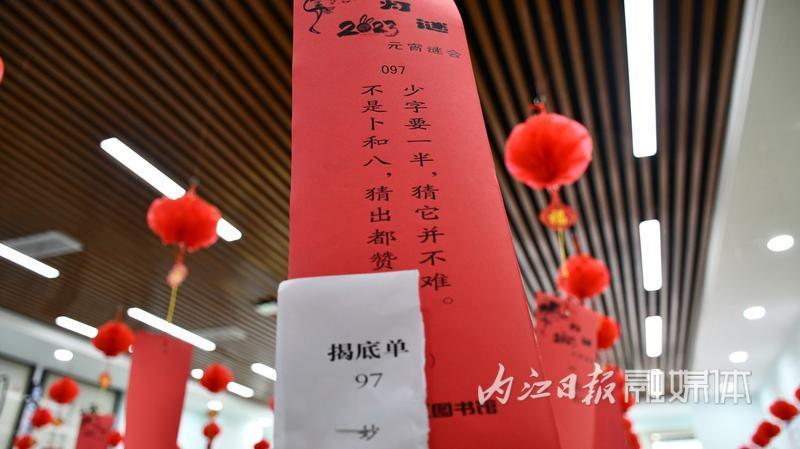 灯谜
2023
元宵谜会
097
少字要一半，猜它并不难。
不是卜和八，猜出都赞
揭底单
97
图书馆
内江日报融媒体